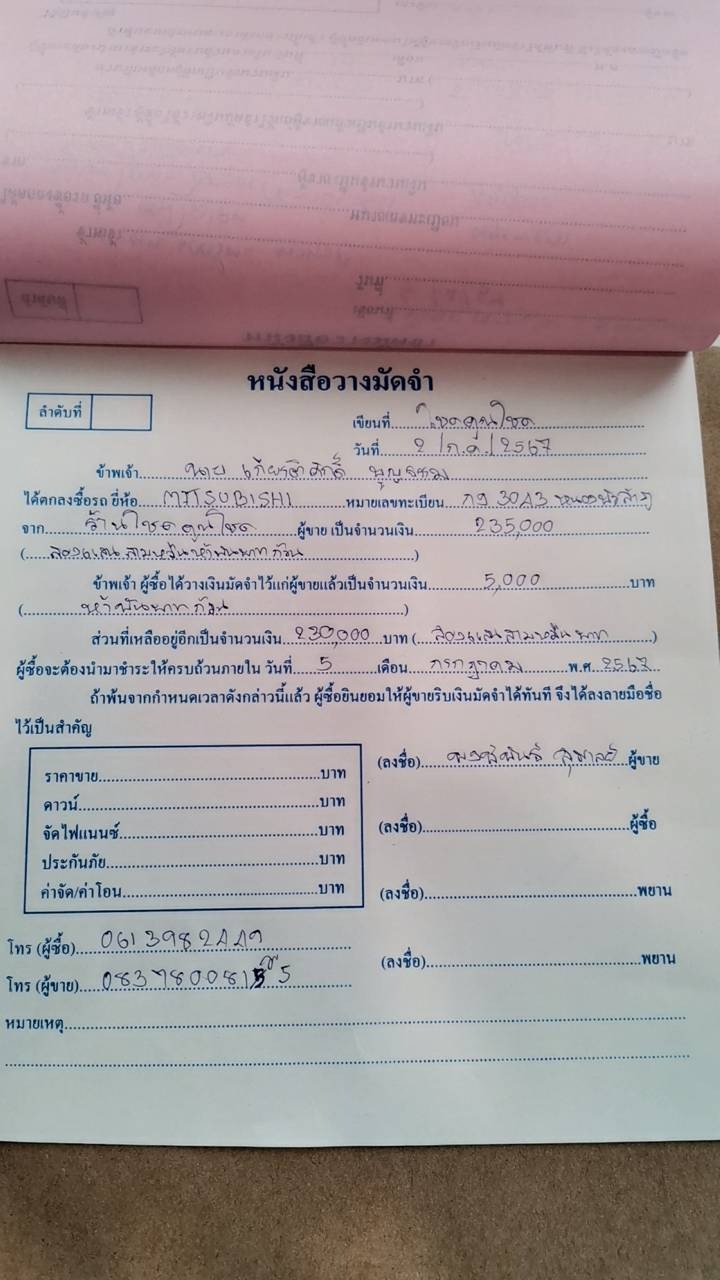 หนังสือวางมัดจำ
ลำดับที่
เขียนที่ โชคคูณโชค
วันที่ 2 / ก.ค. / 2567
ข้าพเจ้า นาย เกียรติศักดิ์ บุญธรรม
ได้ตกลงซื้อรถ ยี่ห้อ MITSUBISHI หมายเลขทะเบียน 3043 หนองบัวลำภู
จาก ร้านโชคคูณโชค ผู้ขาย เป็นจำนวนเงิน 235,000
( สองแสนสามหมื่นห้าพันบาทถ้วน )
ข้าพเจ้า ผู้ซื้อได้วางเงินมัดจำไว้แก่ผู้ขายแล้วเป็นจำนวนเงิน 5,000 บาท
( ห้าพันบาทถ้วน )
ส่วนที่เหลืออยู่อีกเป็นจำนวนเงิน 230,000 บาท ( สองแสนสามหมื่นบาท )
ผู้ซื้อจะต้องนำมาชำระให้ครบถ้วนภายใน วันที่ 5 เดือน กรกฎาคม พ.ศ 2567
ถ้าพ้นจากกำหนดเวลาดังกล่าวนี้แล้ว ผู้ซื้อยินยอมให้ผู้ขายริบเงินมัดจำได้ทันที จึงได้ลงลายมือชื่อ
ไว้เป็นสำคัญ
ราคาขาย บาท
ดาวน์ บาท
จัดไฟแนนซ์ บาท
ประกันภัย บาท
ค่าจัด/ค่าโอน บาท
(ลงชื่อ) ผู้ขาย
(ลงชื่อ) ผู้ซื้อ
(ลงชื่อ) พยาน
(ลงชื่อ) พยาน
โทร (ผู้ซื้อ) 0613982449
โทร (ผู้ขาย)
หมายเหตุ